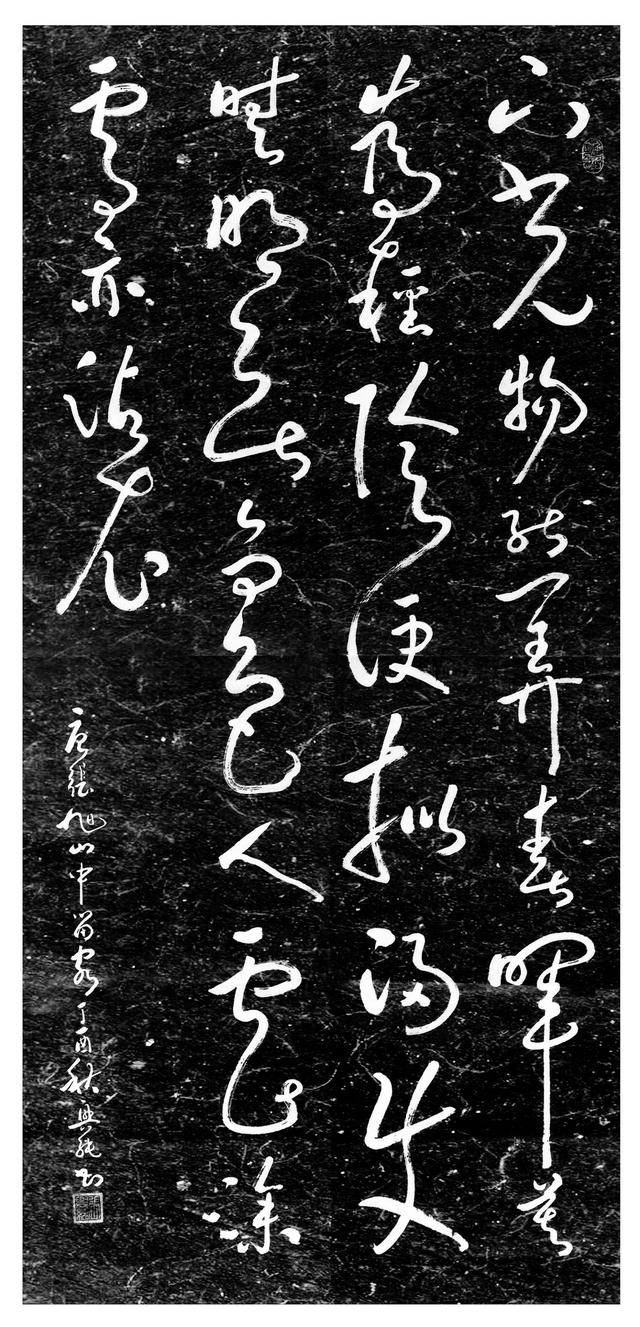 山光物態弄春暉莫
為輕陰便擬歸縱使
晴明無雨色入雲深
處亦沾衣
唐張旭山中留客丁酉秋興書